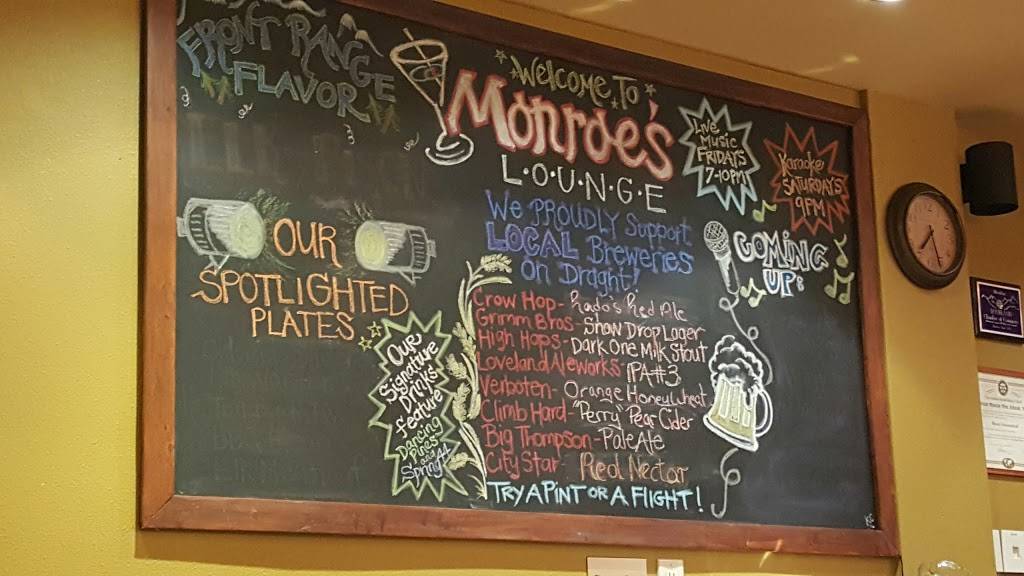 FRONT RANGE
FLAVOR
WELCOME TO
Monroe's
L·O·U·N·G·E
LIVE
MUSIC
FRIDAYS
7-10PM
Karaoke
SATURDAYS
9PM
We PROUDLY Support
LOCAL Breweries
On Draght!
COMING
UP:
OUR
SPOTLIGHTED
PLATES
Our
Signature
Drinks
feature
Dancing
Pines
Spirits!
Crow Hop- Prado's Red Ale
Grimm Bros- Snow Drop Lager
High Hops- Dark One Milk Stout
Loveland Aleworks- IPA #3
Verboten- Orange Honey Wheat
Climb Hard- "Perry" Pear Cider
Big Thompson- Pale Ale
City Star- Red Nectar
TRY A PINT OR A FLIGHT!